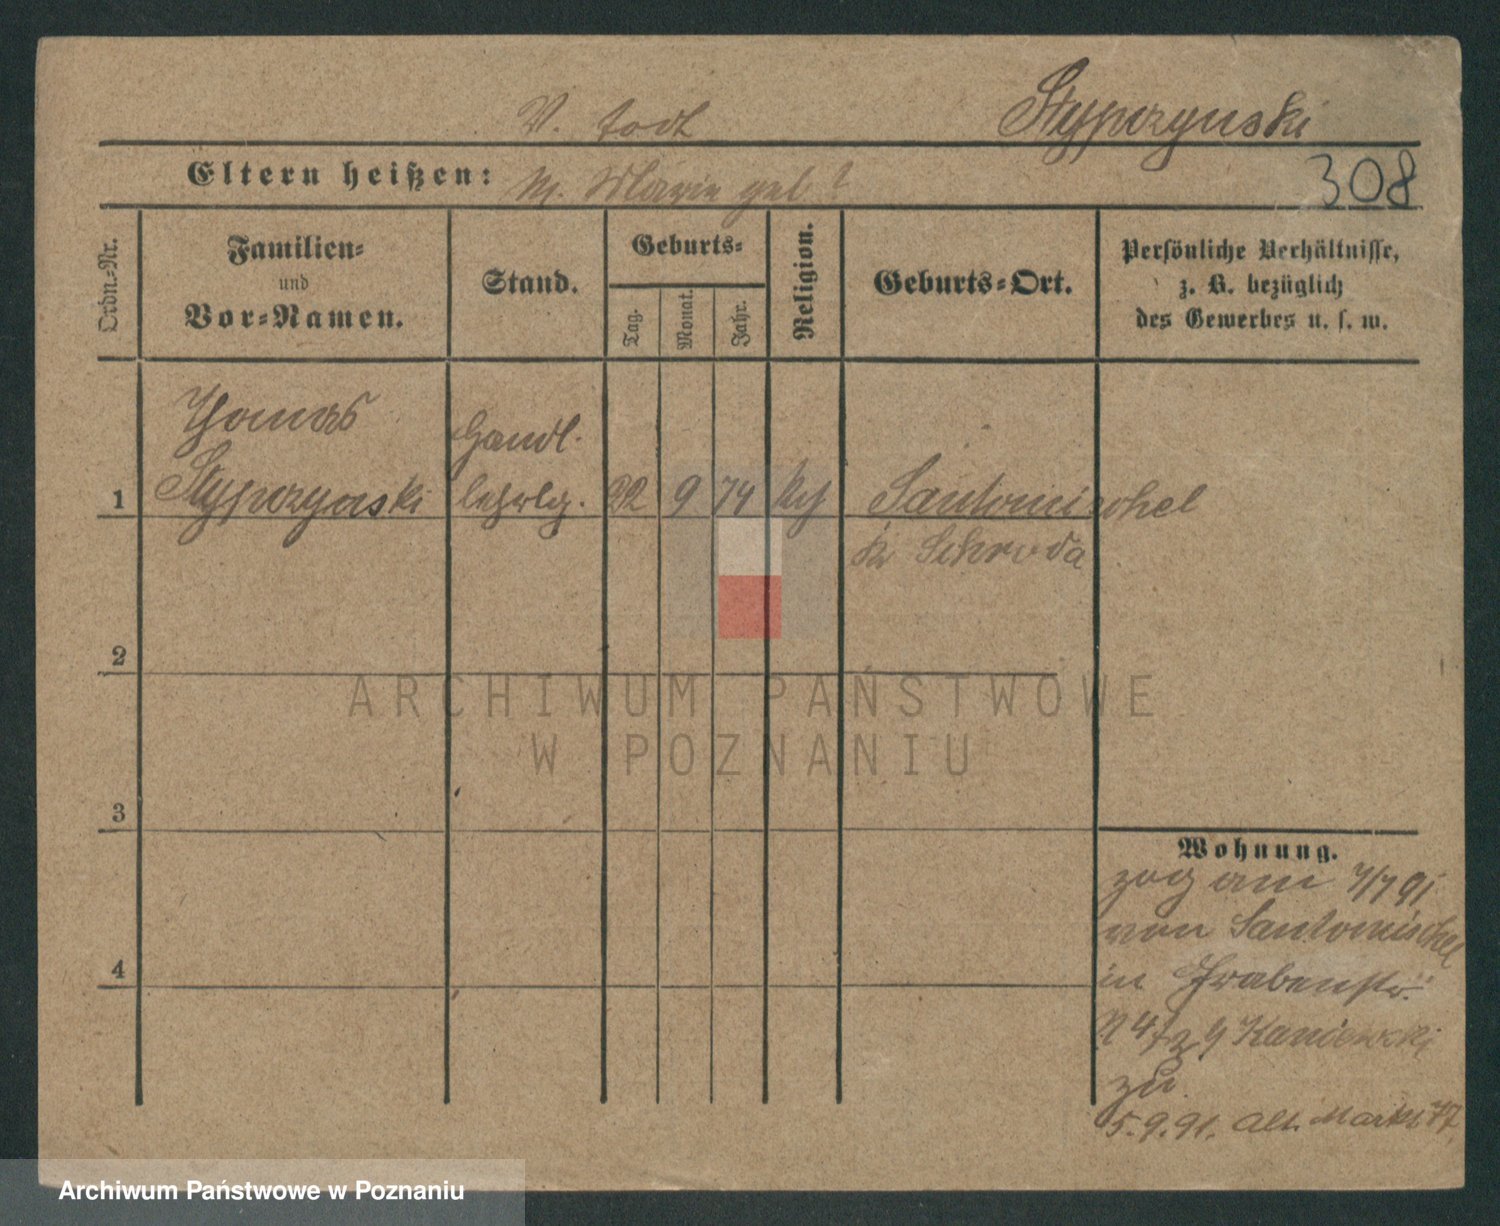 V. todt
Stypczynski
Eltern heißen:
M. Marie geb ?
308
Ordn.-Nr.
Familien-
und
Vor-Namen.
Stand.
Geburts-
Tag.
Monat.
Jahr.
Religion.
Geburts-Ort.
Persönliche Verhältnisse,
z. B. bezüglich
des Gewerbes u. s. w.
Thomas
Stypczynski
Handl.
lehrlg.
1
22
9
74
kth
Santomischel
Kr Schroda
2
ARCHIWUM PAŃSTWOWE
W POZNANIU
3
Wohnung.
zog am 7/7 91
von Santomischel
in Grabenstr.
N 4 Kaniewski
zu.
5.9.91. Alt. Markt 77.
4
Archiwum Państwowe w Poznaniu